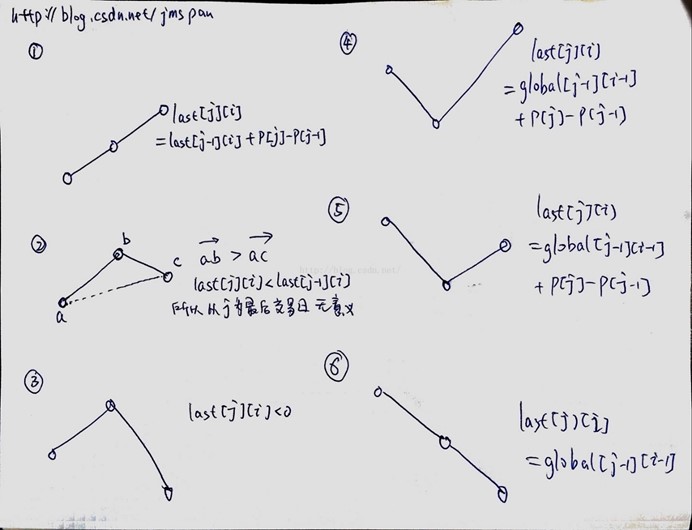 http://blog.csdn.net/jmspan
①
last[j][i]
=last[j-1][i]+P[j]-P[j-1]
②
a
b
c
ab > ac
last[j][i]<last[j-1][i]
所以从j为最后交易日无意义
③
last[j][i]<0
④
last[j][i)
=global[j-1][i-1]
+P[j]-P[j-1)
⑤
last[j][i)
=global[j-1][i-1)
+P[j]-P[j-1)
⑥
last[j)[i]
=global[j-1][i-1]
http://blog.csdn.net/